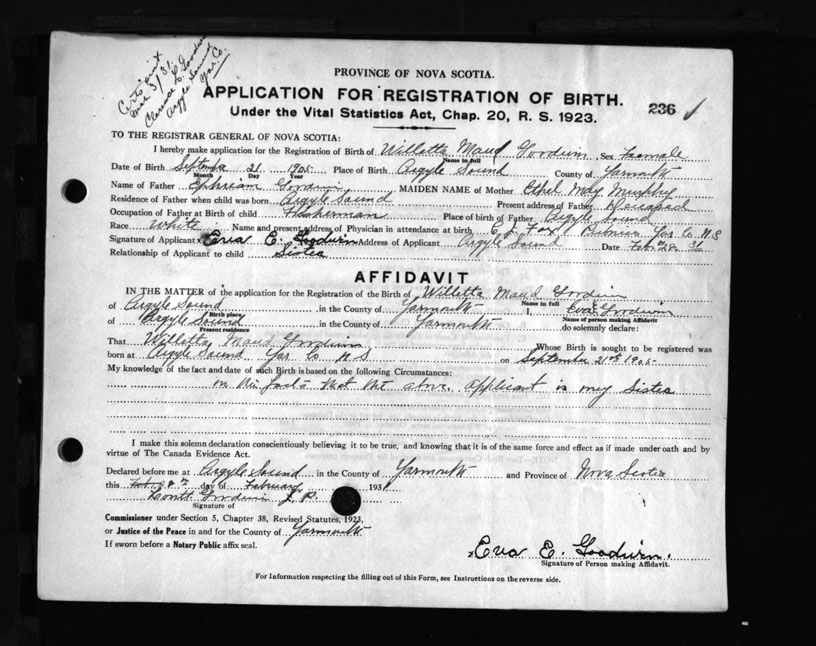 Certs sent
June 3/31
Clarence E. Goodwin
Argyle Sound
Yar Co.
PROVINCE OF NOVA SCOTIA.
APPLICATION FOR REGISTRATION OF BIRTH.
236
Under the Vital Statistics Act, Chap. 20, R. S. 1923.
TO THE REGISTRAR GENERAL OF NOVA SCOTIA:
I hereby make application for the Registration of Birth of Willetta Maud Goodwin, Sex Female
Name in full
Date of Birth September 21 1905 Place of Birth Argyle Sound County of Yarmouth
Month Day Year
Name of Father Ephriam Goodwin, MAIDEN NAME of Mother Ethel May Murphy
Residence of Father when child was born Argyle Sound Present address of Father Deceased
Occupation of Father at Birth of child Fisherman Place of birth of Father Argyle Sound
Race White Name and present address of Physician in attendance at birth C. J. Fox Pubnico Yar Co N.S
Signature of Applicant Eva E. Goodwin Address of Applicant Argyle Sound Date Feb 28 31
Relationship of Applicant to child Sister
AFFIDAVIT
IN THE MATTER of the application for the Registration of the Birth of Willetta Maud Goodwin
Name in full
of Argyle Sound in the County of Yarmouth I, Eva Goodwin
Birth place Name of person making Affidavit
of Argyle Sound in the County of Yarmouth do solemnly declare:
Present residence
That Willetta Maud Goodwin Whose Birth is sought to be registered was
born at Argyle Sound Yar Co N S on September 21st 1905
My knowledge of the fact and date of such Birth is based on the following Circumstances:
on the facts that the above applicant is my Sister
I make this solemn declaration conscientiously believing it to be true, and knowing that it is of the same force and effect as if made under oath and by
virtue of The Canada Evidence Act.
Declared before me at Argyle Sound in the County of Yarmouth and Province of Nova Scotia
this Feb. 28th day of February 1931
Goodwin J. P.
Signature of
Commissioner under Section 5, Chapter 38, Revised Statutes, 1923,
or Justice of the Peace in and for the County of Yarmouth
If sworn before a Notary Public affix seal.
x Eva E. Goodwin.
Signature of Person making Affidavit.
For Information respecting the filling out of this Form, see Instructions on the reverse side.